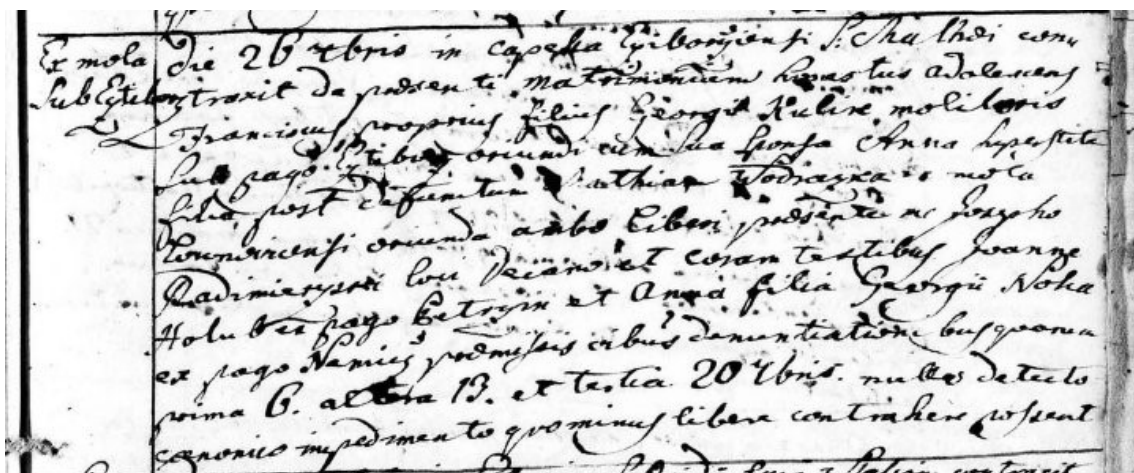 Ex mola die 26 7bris in capella Etiborziensi S. Mathei con
Sub Etiborz traxit de praesenti matrimonium honestus adolescens
Franciscus proprius filius Georgii Kulire molitoris
sub pago Etiborz oriundi cum sua sponsa Anna superstite
filia post defunctum Mathiam Wodrazka e mola
oriunda ambo liberi praesente me Josepho
loci Decano et coram testibus Joanne
Holub ex pago Ketrzin et Anna filia Georgii Noha
ex pago praemissis tribus denuntiationibus quarum
prima 6. altera 13. et tertia 20 7bris. nullo detecto
canonico impedimento quominus libere contrahere possent